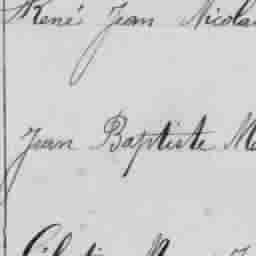 René Jean Nicola
Jean Baptiste M